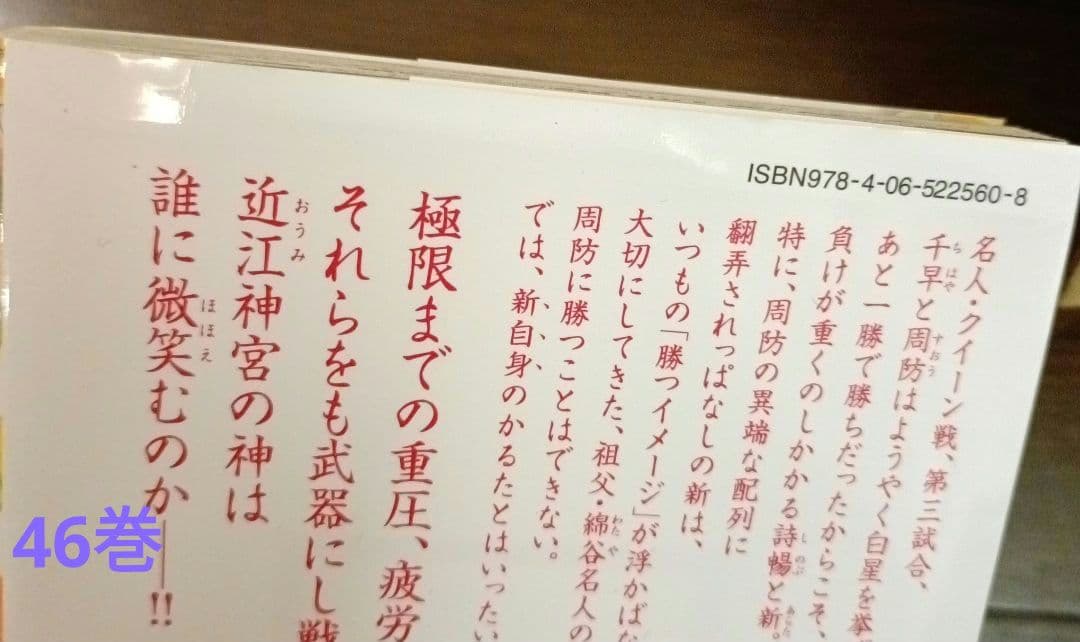 ISBN978-4-06-522560-8
名人・クイーン戦、第三試合、
千早と周防はようやく白星を挙
あと一勝で勝ちだったからこそ、
負けが重くのしかかる詩暢と新。
特に、周防の異端な配列に
翻弄されっぱなしの新は、
いつもの「勝つイメージ」が浮かばな
大切にしてきた、祖父・綿谷名人の
周防に勝つことはできない。
では、新自身のかるたとはいったい
極限までの重圧、疲労
それらをも武器にし戦
近江神宮の神は
誰に微笑むのか——!!
46巻